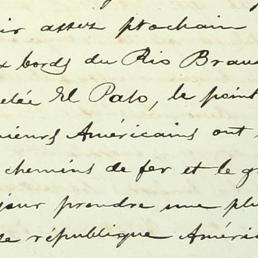 ir assez prochain
x bords du Rio Brav
elée El Paso, le point
ieurs Américains ont
chemins de fer et le g
jour prendre une plu
se république Améri